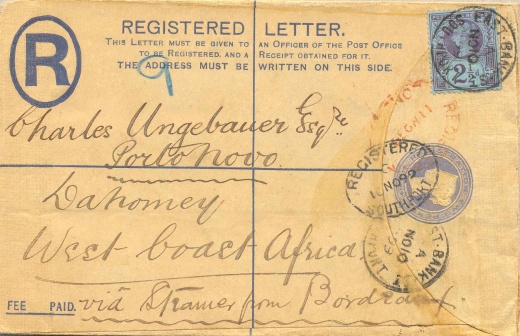 REGISTERED LETTER.
THIS LETTER MUST BE GIVEN TO AN OFFICER OF THE POST OFFICE
TO BE REGISTERED, AND A RECEIPT OBTAINED FOR IT.
THE ADDRESS MUST BE WRITTEN ON THIS SIDE.
R
9
2½
EAST-BANK
Charles Ungebauer Esqre
Porto Novo.
Dahomey
West Coast Africa
REGISTERED
NO 92
SOUTHPORT
EAST-BANK
A
NO 10
FEE PAID. via Steamer from Bordeaux